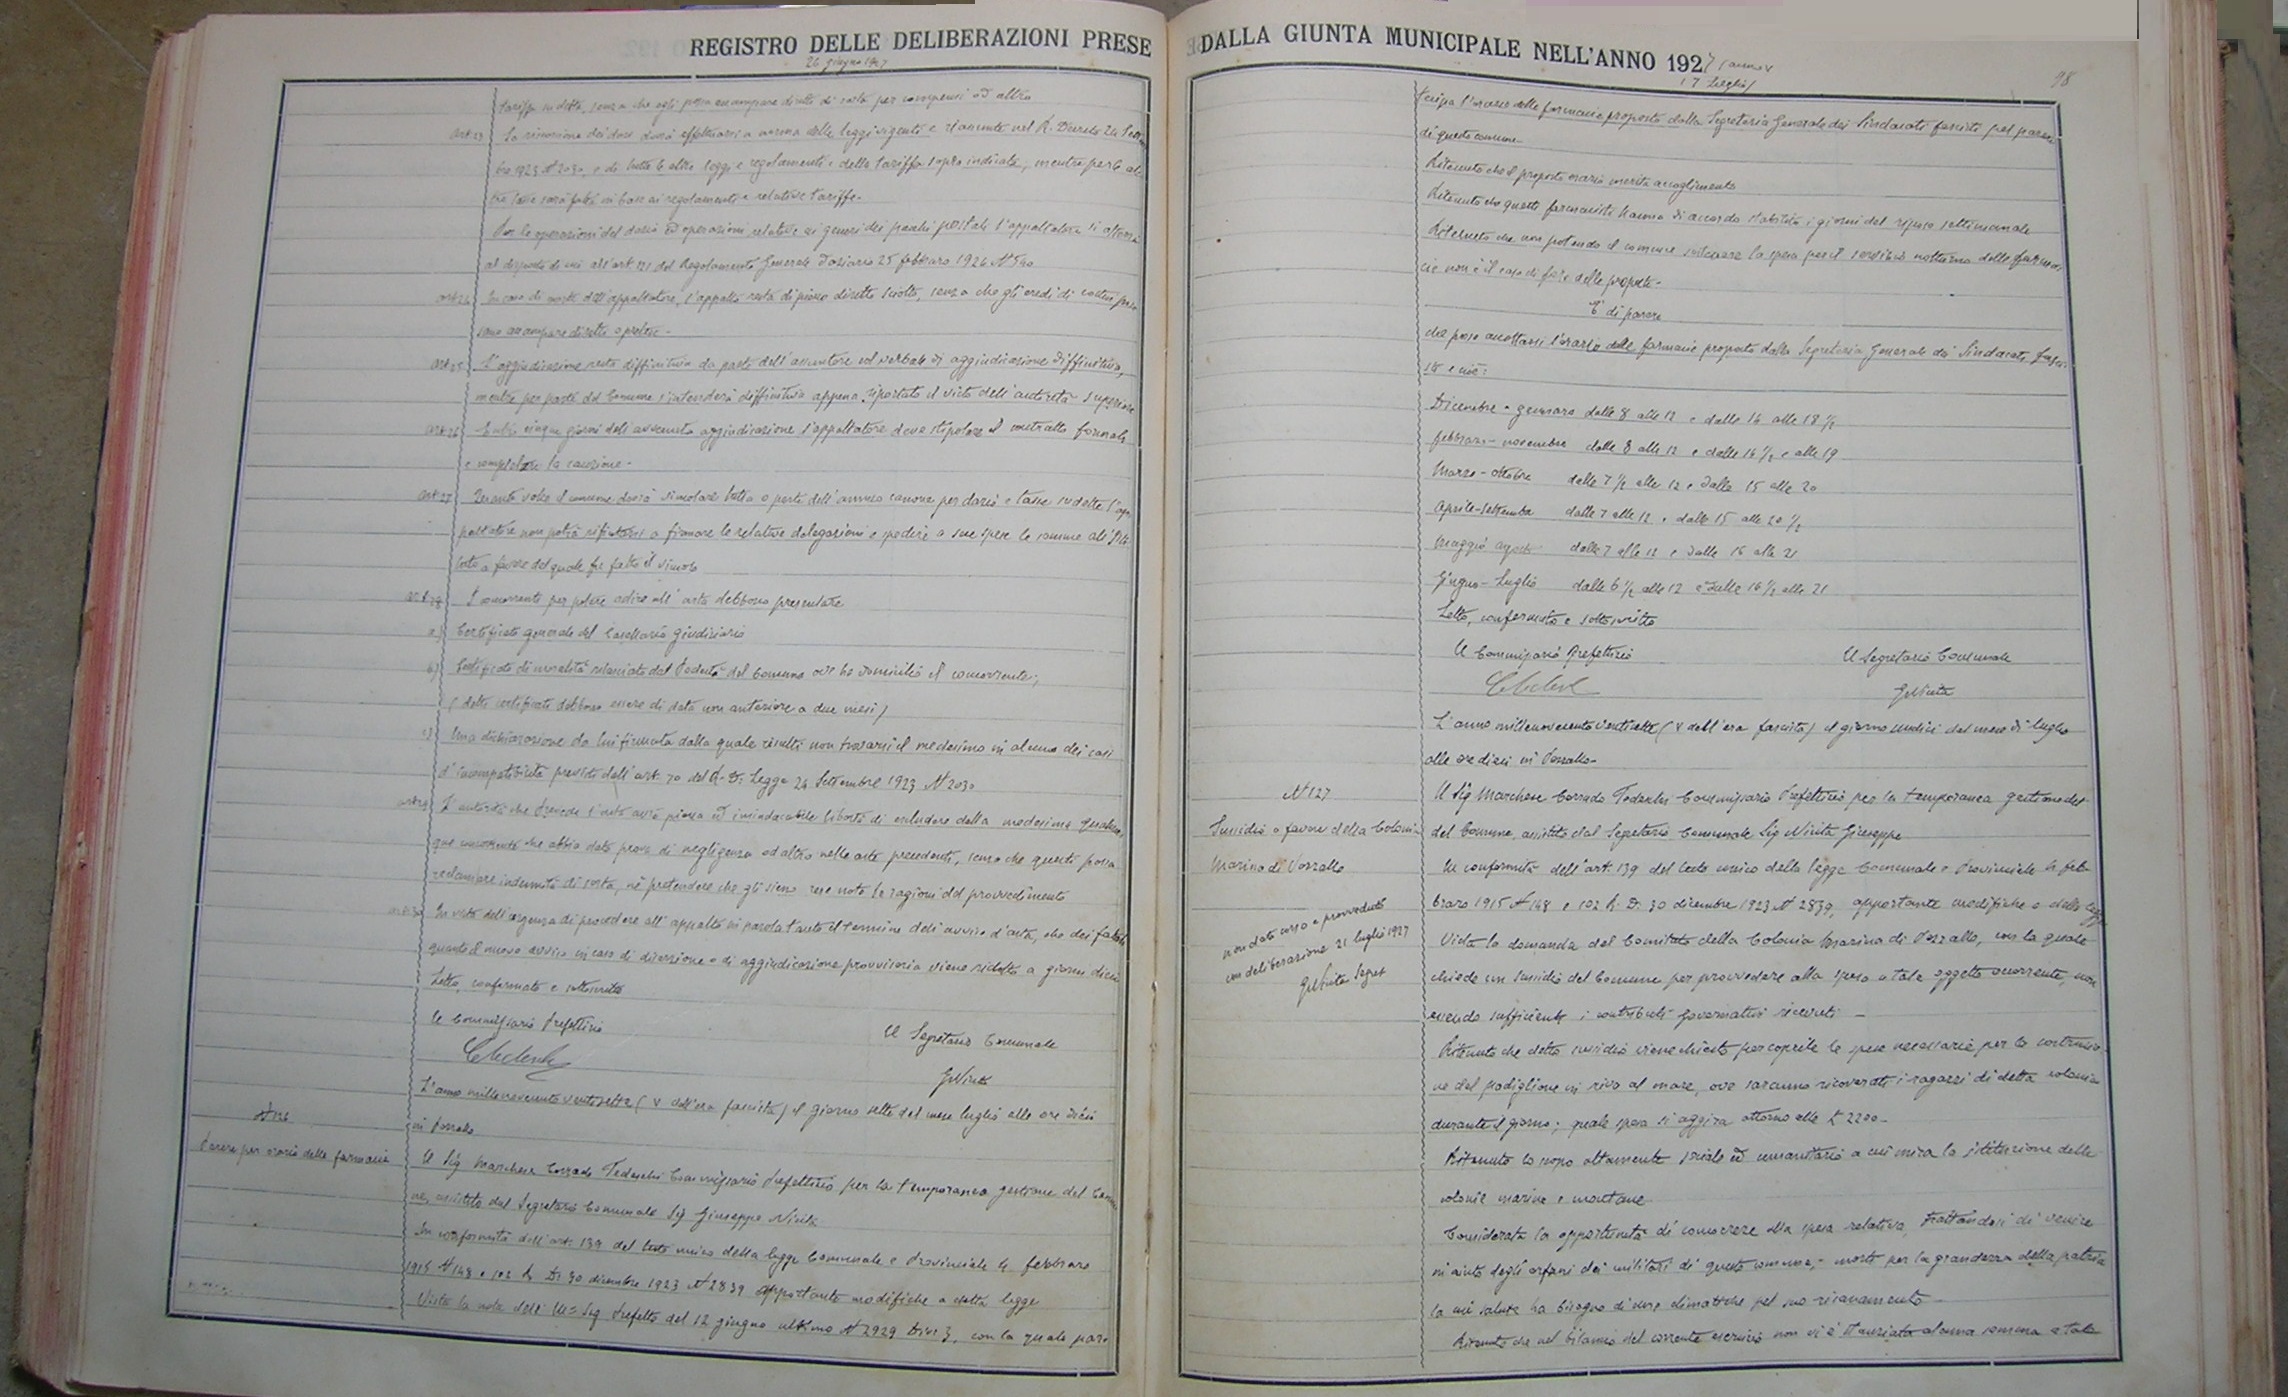 REGISTRO DELLE DELIBERAZIONI PRESE
26 giugno 1927
tariffa su detta, senza che egli possa accampare diritto di sorta per compensi od altro
art 23 La riscossione dei dazi dovrà effettuarsi a norma delle leggi vigenti e rispondente nel R. Decreto 24 Settem
bre 1923 N 2030, e di tutte le altre leggi e regolamenti e della tariffa sopra indicata, mentre per le al
tre tasse sarà fatta in base ai regolamenti e relative tariffe.
Per le operazioni del dazio ed operazioni relative ai generi dei pacchi postali l'appaltatore si atterrà
al disposto di cui all'art. 121 del Regolamento Generale Daziario 25 febbraio 1924 N 540
art 24 In caso di morte dell'appaltatore, l'appalto resta di pieno diritto sciolto, senza che gli eredi di costui pos
sano accampare diritti o pretese -
art 25 L'aggiudicazione resta diffinitiva da parte dell'assuntore col verbale di aggiudicazione diffinitiva,
mentre per parte del Comune s'intenderà diffinitiva appena riportato il visto dell'autorità superiore
art 26 Entro cinque giorni dall'avvenuta aggiudicazione l'appaltatore deve stipolare il contratto formale
e completare la cauzione.
art 27 Quante volte il comune dovrà vincolare tutto o parte dell'annuo canone per dazio e tasse su dette l'ap
paltatore non potrà rifiutarsi a firmare le relative delegazioni e spedire a sue spese le somme all'Isti
tuto a favore del quale fu fatto il vincolo
art 28 I concorrenti per potere adire all'asta debbono presentare
a) Certificato generale del Casellario giudiziario
b) Certificato di moralità rilasciato dal Podestà del Comune ove ha domicilio il concorrente;
(detti certificati debbono essere di data non anteriore a due mesi)
c) Una dichiarazione da lui firmata dalla quale risulti non trovarsi il medesimo in alcuno dei casi
d'incompatibilità previsti dall'art. 70 del R. D. Legge 24 Settembre 1923 N 2030
art 29 L'autorità che presiede l'asta avrà piena ed insindacabile libertà di escludere dalla medesima qualun
que concorrente che abbia dato prova di negligenza od altro nelle aste precedenti, senza che questi possa
reclamare indennità di sorta, nè pretendere che gli siano rese note le ragioni del provvedimento
art 30 In vista dell'urgenza di procedere all'appalto in parola tanto il termine dell'avviso d'asta, che dei fatali
quanto il nuovo avviso in caso di diserzione o di aggiudicazione provvisoria viene ridotto a giorni dieci
Letto, confermato e sottoscritto
Il Commissario Prefettizio
Il Segretario Comunale
GNivita
L'anno millenovecentoventisette (V dell'era fascista) il giorno sette del mese luglio alle ore dieci
in Pozzallo
N 126
Parere per orario delle farmacie
Il Sig Marchese Corrado Tedeschi Commissario Prefettizio per la temporanea gestione del Comu
ne, assistito dal Segretario Comunale Sig Giuseppe Nivita
In conformità dell'art. 139 del testo unico della legge Comunale e Provinciale 4 febbraio
1915 N 148 e 102 R. D. 30 dicembre 1923 N 2839 apportante modifiche a detta legge
Vista la nota dell'Ill= Sig Prefetto del 12 giugno ultimo N 2929 Div 3, con la quale par
DALLA GIUNTA MUNICIPALE NELL'ANNO 1927 (anno V
(7 Luglio)
78
tecipa l'orario delle farmacie proposto dalla Segreteria Generale dei Sindacati fascisti pel parere
di questo comune -
Ritenuto che il proposto orario merita accoglimento
Ritenuto che questi farmacisti hanno di accordo stabilito i giorni del riposo settimanale
Ritenuto che non potendo il comune sostenere la spesa per il servizio notturno delle farma
cie non è il caso di fare delle proposte -
E' di parere
che possa accettarsi l'orario delle farmacie proposto dalla Segreteria Generale dei Sindacati fasci
sti e cioè:
Dicembre - gennaio dalle 8 alle 12 e dalle 14 alle 18 1/2
febbraio - novembre dalle 8 alle 12 e dalle 14 1/2 e alle 19
Marzo - ottobre dalle 7 1/2 alle 12 e dalle 15 alle 20
Aprile - settembre dalle 7 alle 12 e dalle 15 alle 20 1/2
Maggio agosto dalle 7 alle 12 e dalle 16 alle 21
Giugno - Luglio dalle 6 1/2 alle 12 e dalle 16 1/2 alle 21
Letto, confermato e sottoscritto
Il Commissario Prefettizio
Il Segretario Comunale
GNivita
L'anno millenovecentoventisette (V dell'era fascista) il giorno undici del mese di luglio
alle ore dieci in Pozzallo -
N 127
Sussidio a favore della Colonia
Marina di Pozzallo
non dato corso e provveduto
con deliberazione 21 luglio 1927
GNivita Segret
Il Sig Marchese Corrado Tedeschi Commissario Prefettizio per la temporanea gestione del
del Comune, assistito dal Segretario Comunale Sig Nivita Giuseppe
In conformità dell'art. 139 del testo unico della legge Comunale e Provinciale 4 feb-
braio 1915 N 148 e 102 R. D. 30 dicembre 1923 N 2839, apportante modifiche a detta legge
Vista la domanda del Comitato della Colonia Marina di Pozzallo, con la quale
chiede un sussidio del Comune per provvedere alla spesa a tale oggetto occorrente, non
essendo sufficiente i contributi governativi ricevuti -
Ritenuto che detto sussidio viene chiesto per coprire le spese necessarie per la costruzio-
ne del padiglione in riva al mare, ove saranno ricoverati i ragazzi di detta colonia
durante il giorno; quale spesa si aggira attorno alle L 2200 -
Ritenuto lo scopo altamente sociale ed umanitario a cui mira la istituzione delle
colonie marine e montane
Considerata la opportunità di concorrere alla spesa relativa, trattandosi di venire
in aiuto degli orfani dei militari di questo comune, morti per la grandezza della patria
la cui salute ha bisogno di cure climatiche pel suo risanamento -
Ritenuto che nel bilancio del corrente esercizio non vi è stanziata alcuna somma a tale